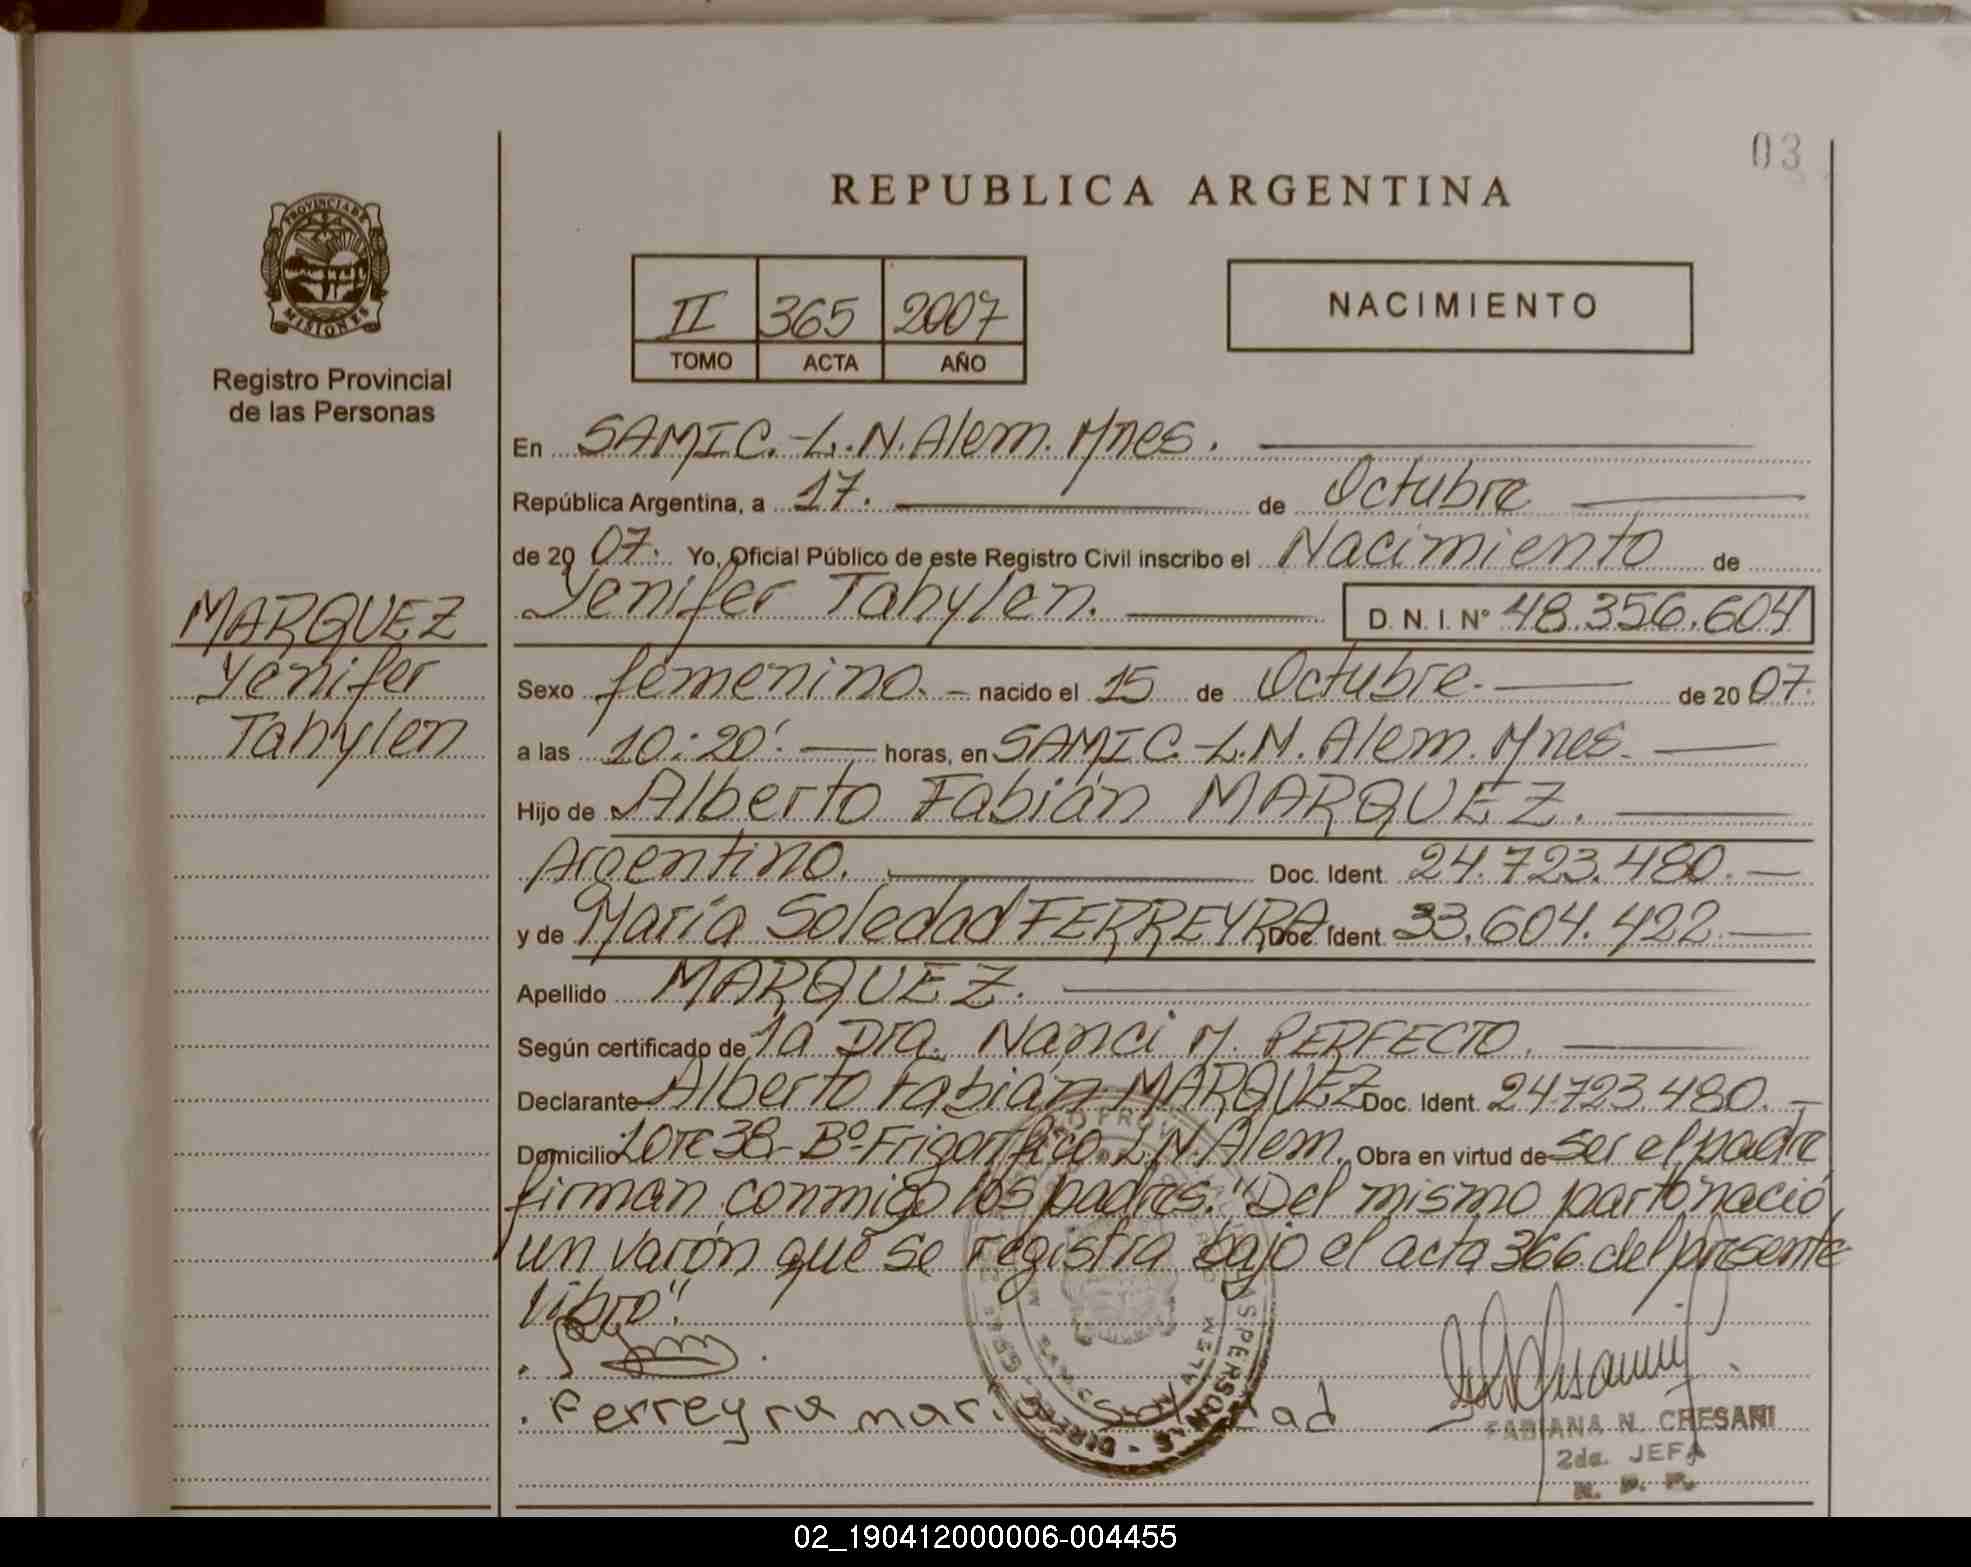 03
REPUBLICA ARGENTINA
PROVINCIA DE
MISIONES
Registro Provincial
de las Personas
II 365 2007
TOMO ACTA AÑO
NACIMIENTO
En SAMIC.-L.N.Alem.Mnes.
República Argentina, a 17. de Octubre
de 20 07. Yo, Oficial Público de este Registro Civil inscribo el Nacimiento de
Yenifer Tahylen. D. N. I. N° 48.356.604
MARQUEZ
Yenifer
Tahylen
Sexo femenino. nacido el 15 de Octubre. de 20 07.
a las 10:20'. horas, en SAMIC.-L.N.Alem.Mnes.
Hijo de Alberto Fabián MARQUEZ.
Argentino. Doc. Ident. 24.723.480.
y de María Soledad FERREYRA Doc. Ident. 33.604.422
Apellido MARQUEZ.
Según certificado de la Dra. Nanci M. PERFECTO.
Declarante Alberto Fabián MARQUEZ Doc. Ident. 24.723.480.
Domicilio Lote 38-Bº-Frigorífico.L.N.Alem. Obra en virtud de ser el padre
firman conmigo los padres."Del mismo parto nació
un varón que se registra bajo el acta 366 del presente
libro".
Ferreyra maria Soledad
FABIANA N. CRESANI
2da. JEFA
R. P. P.
02_190412000006-004455